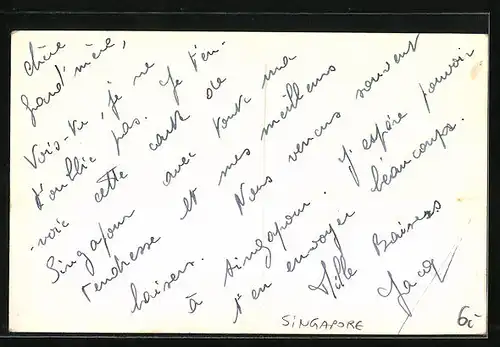 chère
grand'mère,
Vois-tu, je ne
t'oublie pas. Je t'en-
-voie cette carte de
Singapour avec toute ma
tendresse et mes meilleurs
baisers. Nous venons souvent
à Singapour. J'espère pouvoir
t'en envoyer beaucoup.
Mille Baisers
Jacq
SINGAPORE
6.-